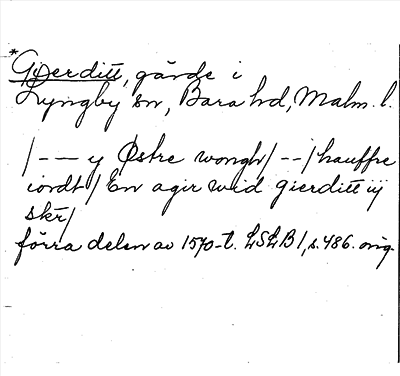 *Gierditt, gärde i
Lyngby sn, Bara hd, Malm. l.
/ - — y Østre wongh / - - / hauffre
iordt / En agir wid gierditt iij
skr /
förra delen av 1570-t. LSLB 1, s. 486. orig.